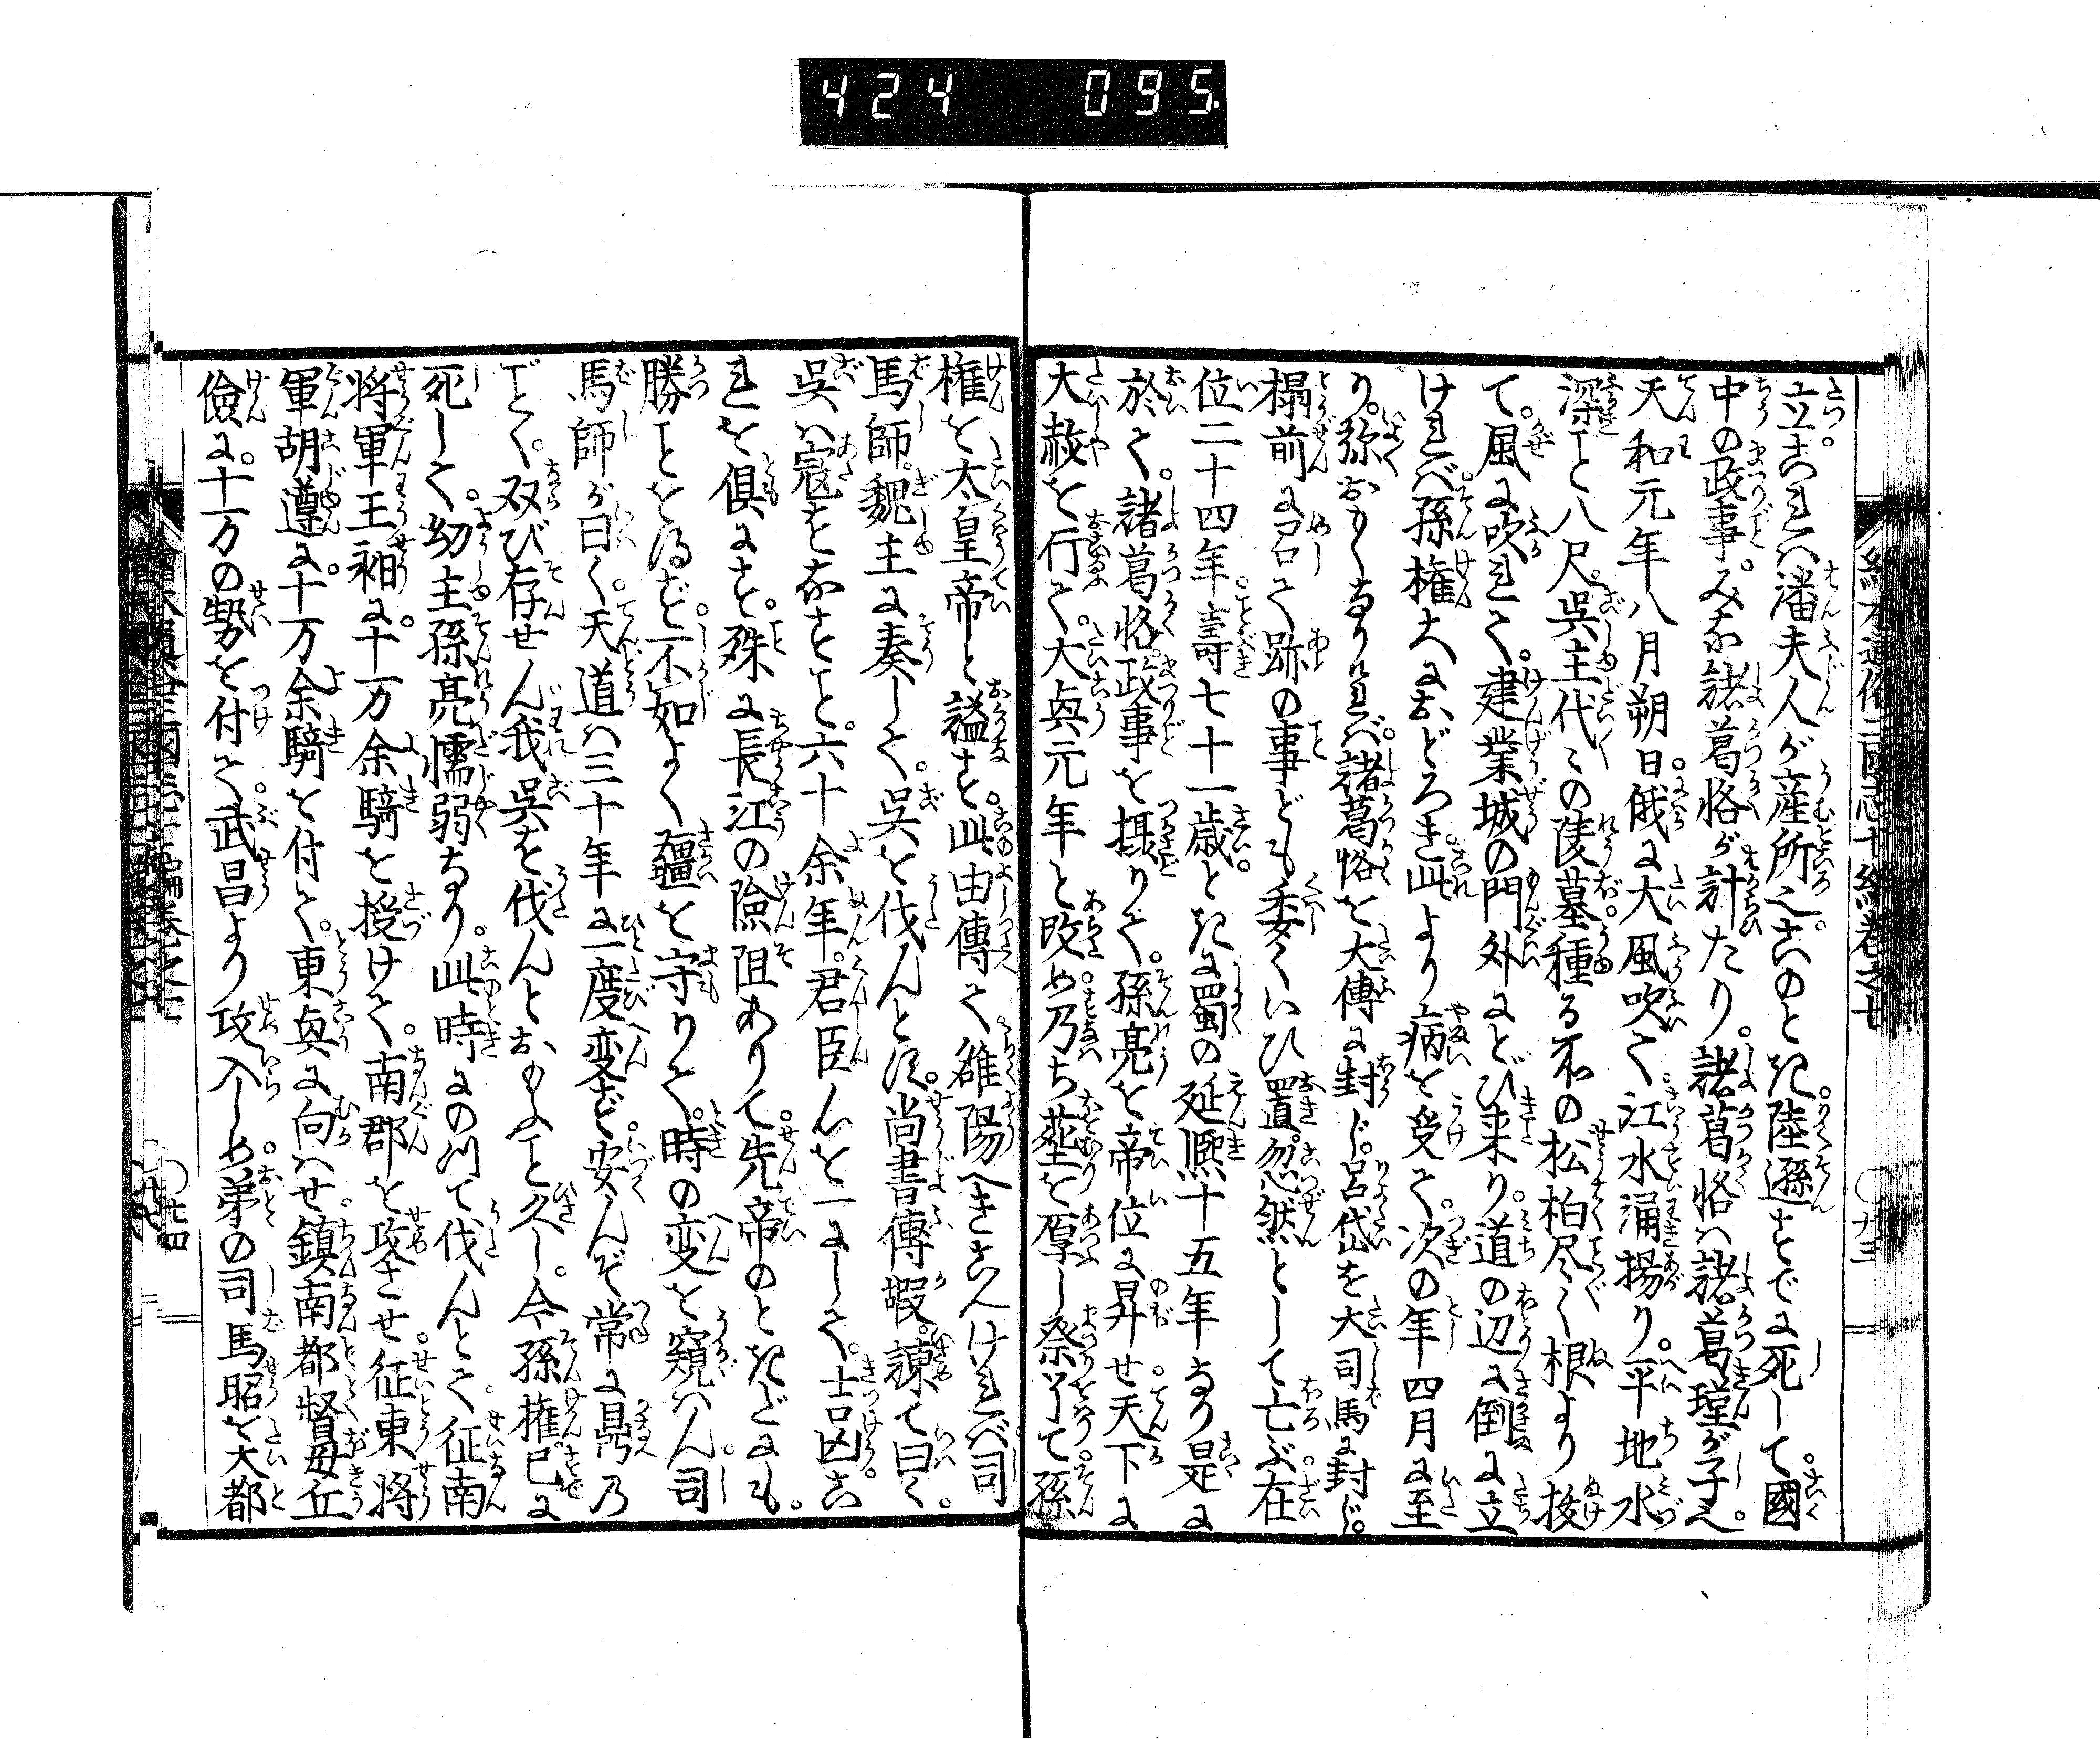 424 095
立。これハ潘夫人が産所之。このとき陸遜すでに死して。國
中の政事。みな諸葛恪が計たり。諸葛恪ハ諸葛瑾が子之。
天和元年八月朔日。俄に大風吹て江水涌揚り。平地水
深こと八尺。呉主代々の陵墓種る所の松柏尽く根より拔
て。風に吹れて。建業城の門外にとび来り。道の辺に倒に立
けれバ。孫権大におどろき。此より病を受て。次の年四月に至
り。弥おもくなりけれバ。諸葛恪を大傅に封じ。呂岱を大司馬に封じ。
榻前に召て跡の事ども委くいひ置。忽然として亡ぶ。在
位二十四年。壽七十一歳。ときに蜀の延熈十五年なり。是に
於て。諸葛恪。政事を摂りて。孫亮を帝位に昇せ。天下に
大赦を行て。大興元年と改め。乃ち塟を厚し祭畢て。孫
権を太皇帝と謚す。此由傳て。雒陽へきこへけれバ。司
馬師。魏主に奏して。呉を伐んとす。尚書傅嘏。諫て曰く。
呉ハ寇をなすこと。六十余年。君臣心を一にして。吉凶こ
れを倶にす。殊に長江の險阻ありて。先帝のときだにも。
勝ことを得ず。不如よく疆を守りて。時の変を窺ハん。司
馬師が曰く。天道ハ三十年に一度変ず。安んぞ常に鼎乃
ごとく。双び存せん。我呉を伐んとおもふこと久し。今孫権已に
死して。幼主孫亮懦弱なり。此時にのつて伐んとて。征南
将軍王昶に。十万余騎を授けて。南郡を攻させ。征東将
軍胡遵に。十万余騎を付て。東興に向ハせ。鎮南都督毋丘
儉に。十万の勢を付て。武昌より攻入しめ。弟の司馬昭を大都